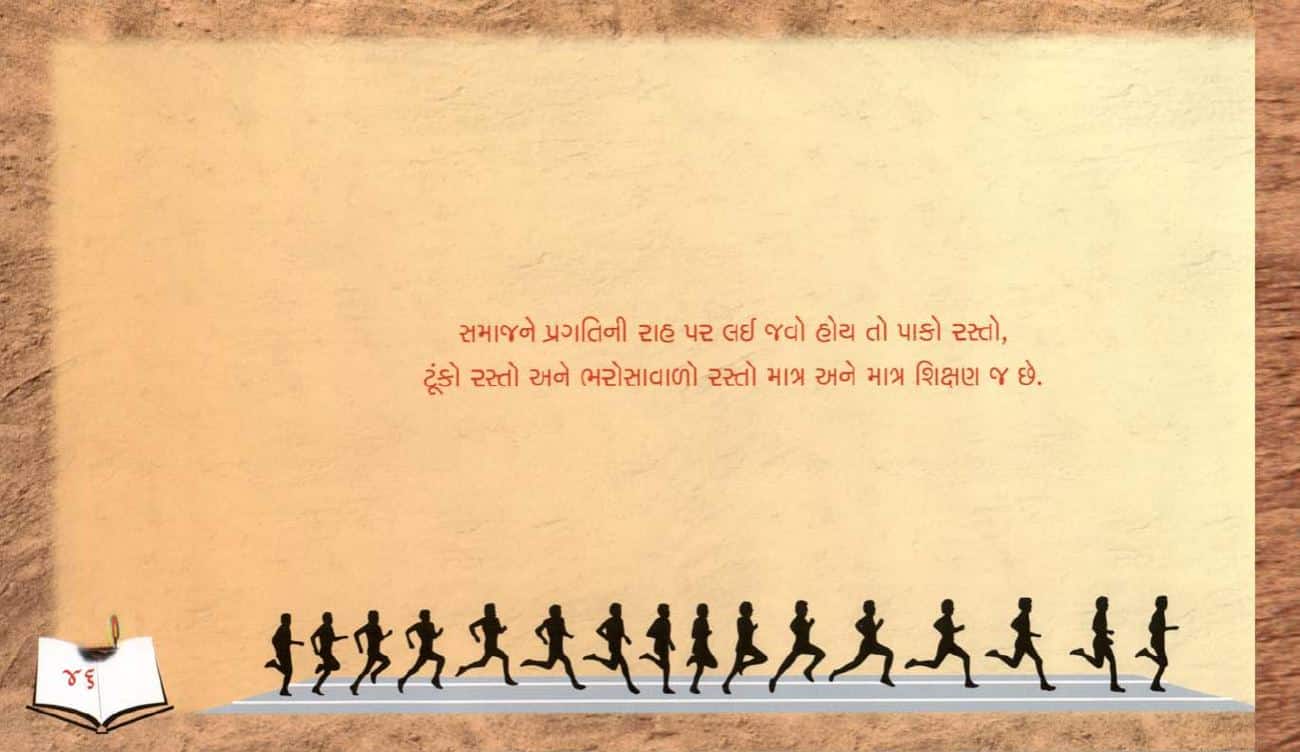 સમાજને પ્રગતિની રાહ પર લઈ જવો હોય તો પાકો રસ્તો,
ટૂંકો રસ્તો અને ભરોસાવાળો રસ્તો માત્ર અને માત્ર શિક્ષણ જ છે.
૪૬